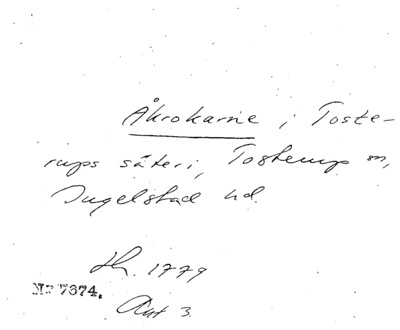 Åkrokarne i Toste-
rups säteri, Tosterup sn,
Ingelstad hd.
Lh. 1779
NF 7674.
Akt 3.